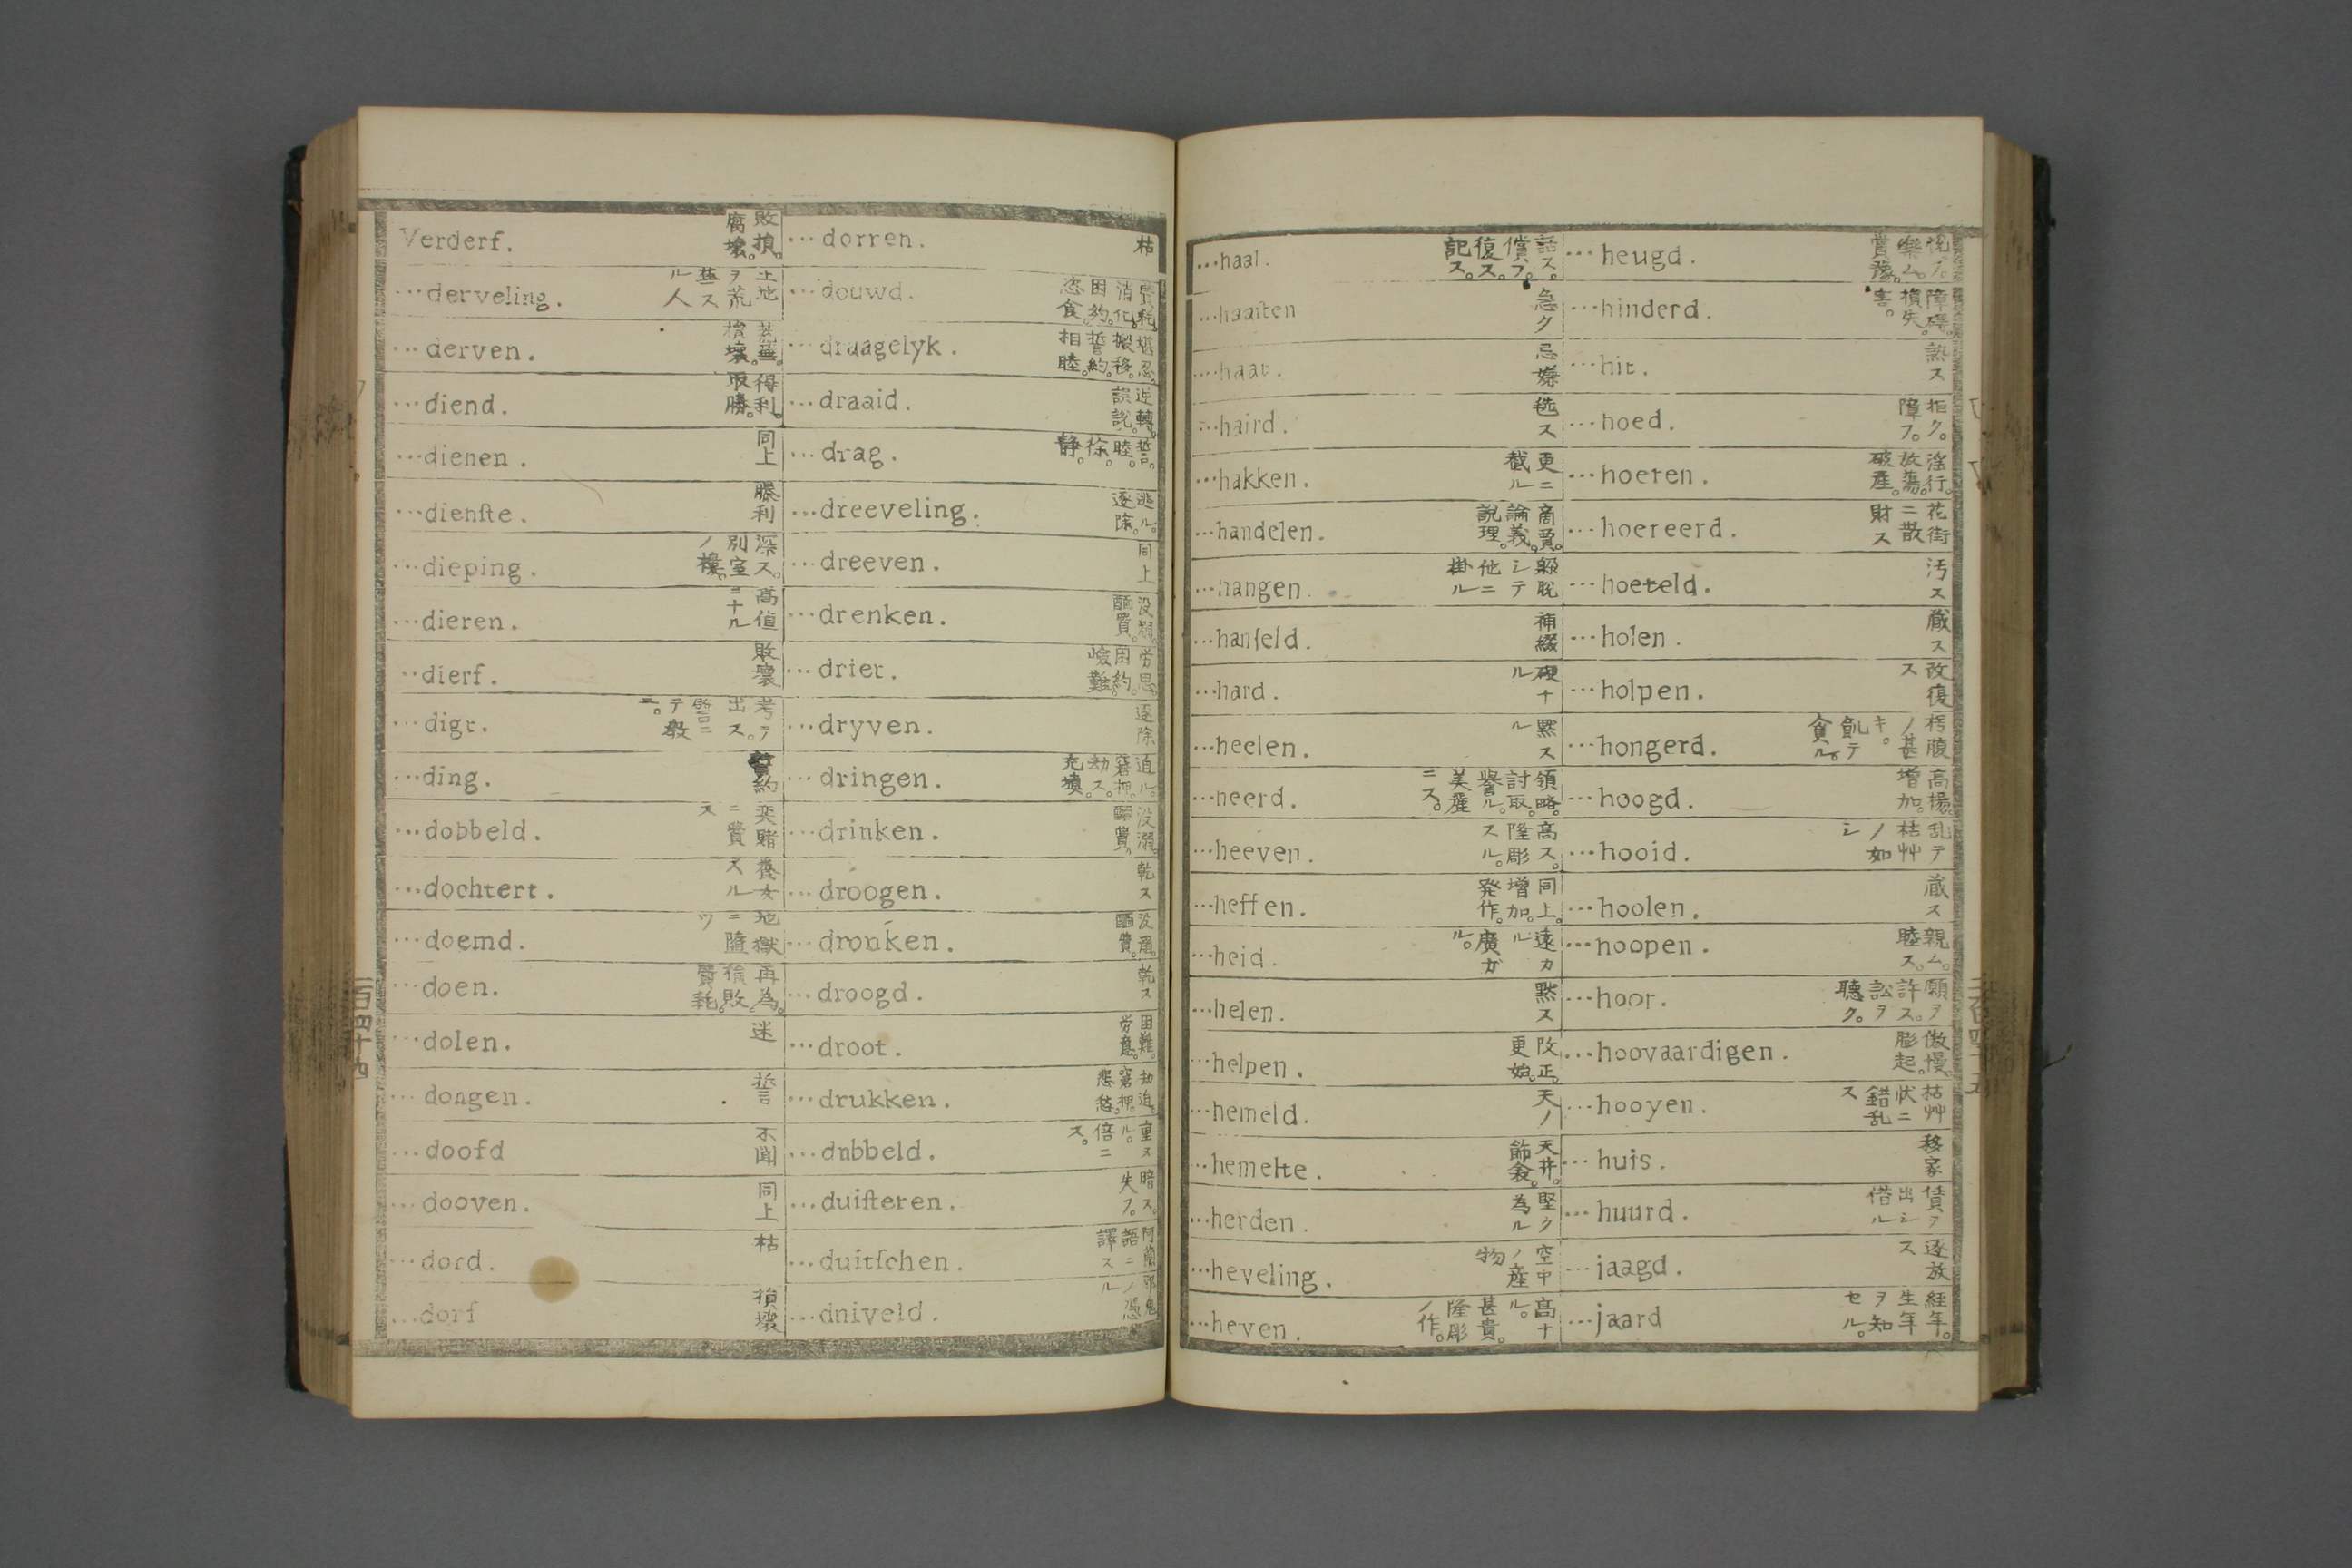 Verderf. 敗損。腐壊。
…derveling. 土地ヲ荒蕪スル人
…derven. 損壊。
…diend. 得利。取勝。
…dienen. 同上
…dienſte. 勝利
…dieping. 深ス。別室ノ樓。
…dieren. 高値ニナル
…dierf. 敗壊
…digt. 考ヲ出ス。
…ding. 約
…dobbeld. 奕賭ニ費ス
…dochtert. 養女スル
…doemd. 地獄ニ墮ツ
…doen. 再為。損敗。費耗。
…dolen. 迷
…dongen. 誓
…doofd 不聞
…dooven. 同上
…dord. 枯
…dorf 損壊
…dorren. 枯
…douwd. 消化。困約。
…draagelyk. 堪忍。搬移。誓約。相睦。
…draaid. 逆轉。誤説。
…drag. 誓。睦。徐。静。
…dreeveling. 逃ル。逐除。
…dreeven. 同上
…drenken. 没溺。
…drier. 労思。困約。嶮難。
…dryven. 逐除
…dringen. 迫ル。窘押。劫ス。充塡。
…drinken. 没溺。
…droogen. 乾ス
…dronken. 没溺。
…droogd. 乾ス
…droot. 困難。労意。
…drukken. 劫迫。窘押。愁。
…dnbbeld. 重スル。倍ニス。
…duiſteren. 暗ス。失フ。
…duitſchen. 阿蘭語ニ譯ス
…dniveld. 邪鬼ノ憑ル
…haal. 話ス。償フ。復ス。記ス。
…haaſten 急ク
…haat. 忌嫌
…haird. ス
…hakken. 更ニ截ル
…handelen. 商賣。論義。説理。
…hangen. 解脱シテ他ニ掛ル
…hanſeld. 補綴
…hard. 硬ナル
…heelen. 黙スル
…heerd. 領略。討取。譽ル。美麗ニス。
…heeven. 高ス。隆彫スル。
…heffen. 同上。増加。発作。
…heid. 遠カル 廣ガル。
…helen. 黙ス
…helpen. 改正。更始。
…hemeld. 天ノ
…hemelte. 天井。飾衾。
…herden. 堅ク為ル
…heveling. 空中ノ産物
…heven. 高ナル。甚貴。隆彫ノ作。
…heugd. 悦フ。樂ム。賞
…hinderd. 障碍。損失。害。
…hit. 熱ス
…hoed. 拒ク。障フ。
…hoeren. 淫行。放蕩。破産。
…hoereerd. 花街ニ散財ス
…hoeteld. 汚ス
…holen. 蔵ス
…holpen. 改復ス
…hongerd. 枵腹ノ甚キ。飢テ貪ル。
…hoogd. 高揚。増加。
…hooid. 乱テ枯艸ノ如シ
…hoolen. 蔵ス
…hoopen. 親ム。睦ス。
…hoor. 願ヲ許ス。訟ヲ聴ク。
…hoovaardigen. 傲慢。膨起。
…hooyen. 枯艸状ニ錯乱ス
…huis. 移家
…huurd. 賃ヲ出シ借ル
…jaagd. 逐放ス
…jaard 経年。生年ヲ知セル。